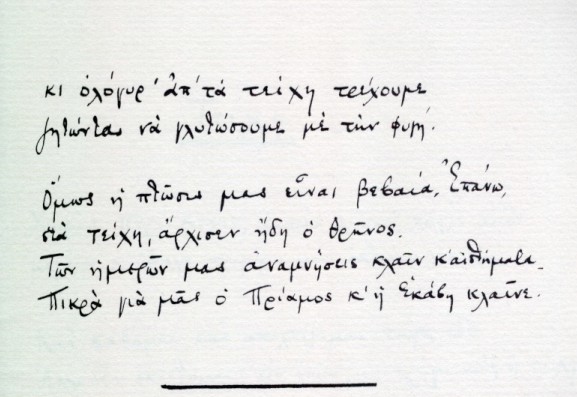 κι ὁλόγυρ' ἀπ' τὰ τείχη τρέχουμε
ζητῶντας νὰ γλυτώσουμε μὲ τὴν φυγή.
Ὅμως ἡ πτῶσις μας εἶναι βεβαία. Ἐπάνω,
στὰ τείχη, ἄρχισεν ἤδη ὁ θρῆνος.
Τῶν ἡμερῶν μας ἀναμνήσεις κλαῖν κ' αἰσθήματα.
Πικρὰ γιὰ μᾶς ὁ Πρίαμος κ' ἡ Ἑκάβη κλαῖνε.